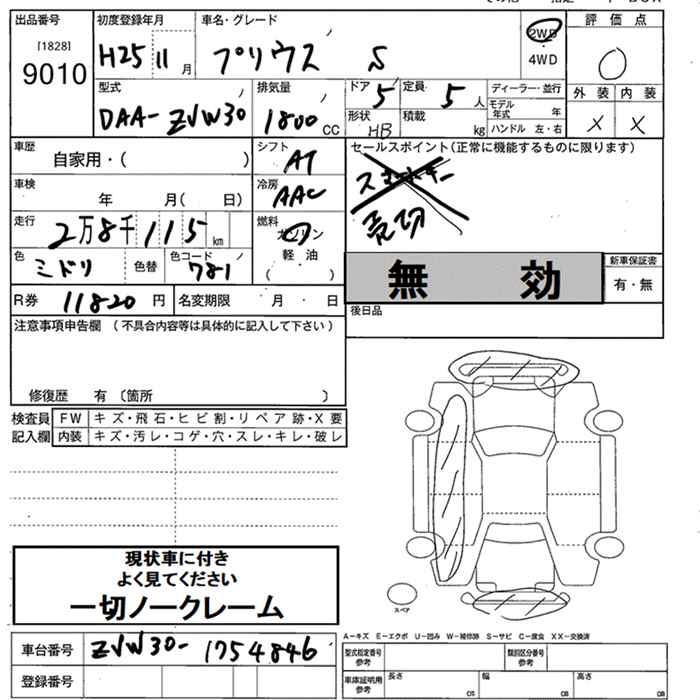 出品番号 初度登録年月 車名・グレード 評価点
[1828]
9010
H25 11月 プリウス S
2WD
4WD
外装 内装
× ×
型式 排気量 ドア 5 定員 5人 ディーラー・並行
DAA-ZVW30 1800 CC
モデル年式 年
形状 HB 積載 kg ハンドル 左・右
車歴 シフト セールスポイント(正常に機能するものに限ります)
自家用・( ) AT
車検 冷房
年 月( 日) AAC
売切
走行 燃料
2万8千115km ガソリン
軽油
( )
色 ミドリ 色替 色コード 781
無 効
新車保証書
有・無
R券 11820円 名変期限 月・日
後日品
注意事項申告欄 (不具合内容等は具体的に記入して下さい)
修復歴 有 〔箇所 〕
検査員 FW キズ・飛石・ヒビ割・リペア跡・X要
記入欄 内装 キズ・汚レ・コゲ・穴・スレ・キレ・破レ
現状車に付き
よく見てください
一切ノークレーム
スペア
A-キズ E-エクボ U-凹み W-補修跡 S-サビ C-腐食 XX-交換済
車台番号 ZVW30-1754846
登録番号
型式指定番号 参考 類別区分番号 参考
車庫証明用 参考 長さ CM 幅 CM 高さ CM